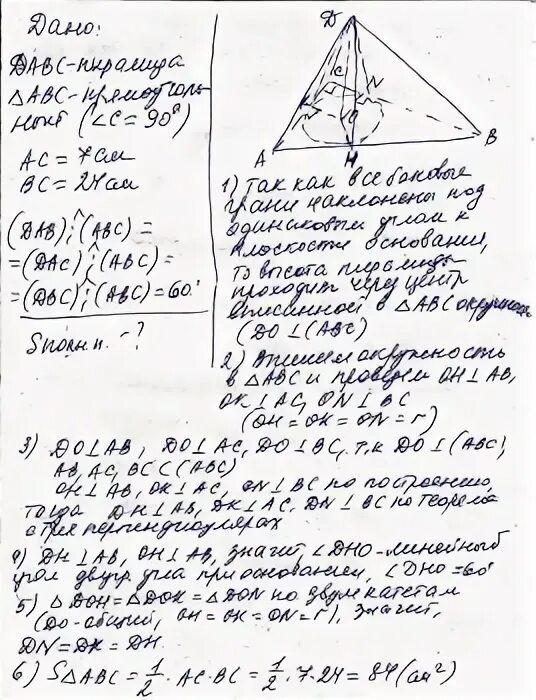 Дано:
DABC-пирамида
△ABC-прямоуголь-
ный (∠C = 90°)
AC = 7см
BC = 24см
(DAB);^(ABC) =
=(DAC);^(ABC) =
=(DBC);^(ABC) = 60°
Sполн.п. - ?
D
C
N
K
O
A
H
B
1) Так как все боковые
грани наклонены под
одинаковым углом к
плоскости основания,
то высота пирамиды
проходит через центр
вписанной в △ABC окружнос
(DO⊥(ABC)
2) Впишем окружность
в △ABC и проведем OH⊥AB,
OK⊥AC, ON⊥BC
(OH = OK = ON = r)
3) DO⊥AB, DO⊥AC, DO⊥BC, т.к DO⊥(ABC),
AB, AC, BC⊂(ABC)
OH⊥AB, OK⊥AC, ON⊥BC по построению,
тогда DH⊥AB, DK⊥AC, DN⊥BC по теореме
о трех перпендикулярах
4) DH⊥AB, OH⊥AB, значит, ∠DHO-линейный
угол двугр. угла при основании, ∠DHO = 60°
5) △DOH = △DOK = △DON по двум катетам
(DO-общий, OH = OK = ON = r), значит,
DN = DK = DH.
6) S△ABC = 1/2 · AC · BC = 1/2 · 7 · 24 = 84 (см²)